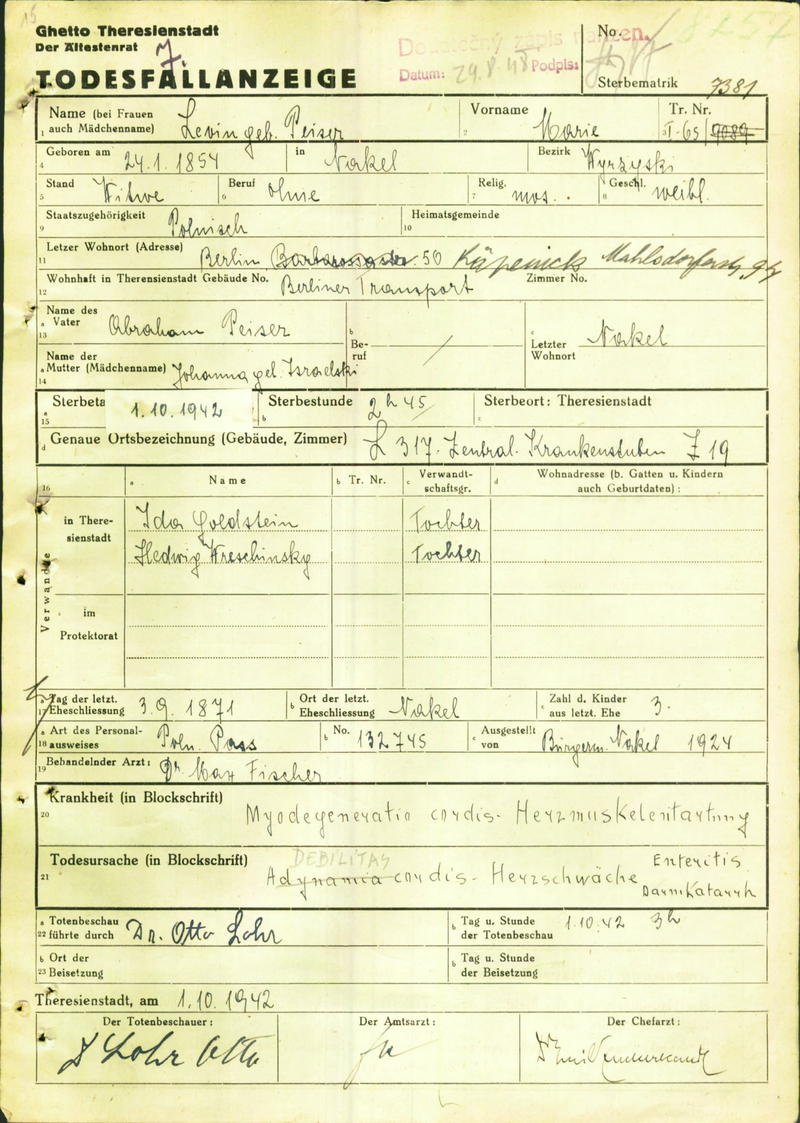 15
Ghetto Theresienstadt
Der Ältestenrat
7.
TODESFALLANZEIGE
Dodatečný zápis
Datum: 29.8.48 Podpis:
No.
Sterbematrik 7381
Name (bei Frauen auch Mädchenname) Levin geb. Peiser
Vorname Marie
Tr. Nr. I-65/9089
Geboren am 24.1.1854 in Nakel Bezirk Wyrzyski
Stand Witwe Beruf Ohne Relig. mos. Geschl. weibl.
Staatszugehörigkeit Polnisch Heimatsgemeinde
Letzer Wohnort (Adresse) Berlin Barbarossastr. 50 Käpenick Mahlsdorferstr.
Wohnhaft in Theresienstadt Gebäude No. Berliner Transport Zimmer No.
Name des Vater Abraham Peiser Beruf / Letzter Wohnort Nakel
Name der Mutter (Mädchenname) Johanna geb. Israelski
Sterbeta 1.10.1942 Sterbestunde 2h 45 Sterbeort: Theresienstadt
Genaue Ortsbezeichnung (Gebäude, Zimmer) L 317. Zentral. Krankenstuben Z 19
Name Tr. Nr. Verwandtschaftsgr. Wohnadresse (b. Gatten u. Kindern auch Geburtdaten):
Verwandte
in Theresienstadt
Ida Goldstein Tochter
Hedwig Wreschinsky Tochter
im Protektorat
Tag der letzt. Eheschliessung 3.9.1871 Ort der letzt. Eheschliessung Nakel Zahl d. Kinder aus letzt. Ehe 3.
Art des Personalausweises Poln. Pass No. 132745 Ausgestellt von Bürgerm. Nakel 1924
Behandelnder Arzt: Dr. Max Fischer
Krankheit (in Blockschrift) Myodegeneratio cordis- Herzmuskelentartung
Todesursache (in Blockschrift) DEBILITAS Adynamia cordis- Herzschwäche Enteritis Darmkatarrh
Totenbeschau führte durch Dr. Otto Lohr Tag u. Stunde der Totenbeschau 1.10.42 3h
Ort der Beisetzung Tag u. Stunde der Beisetzung
Theresienstadt, am 1.10.1942
Der Totenbeschauer: Der Amtsarzt: Der Chefarzt:
Dr Lohr Otto